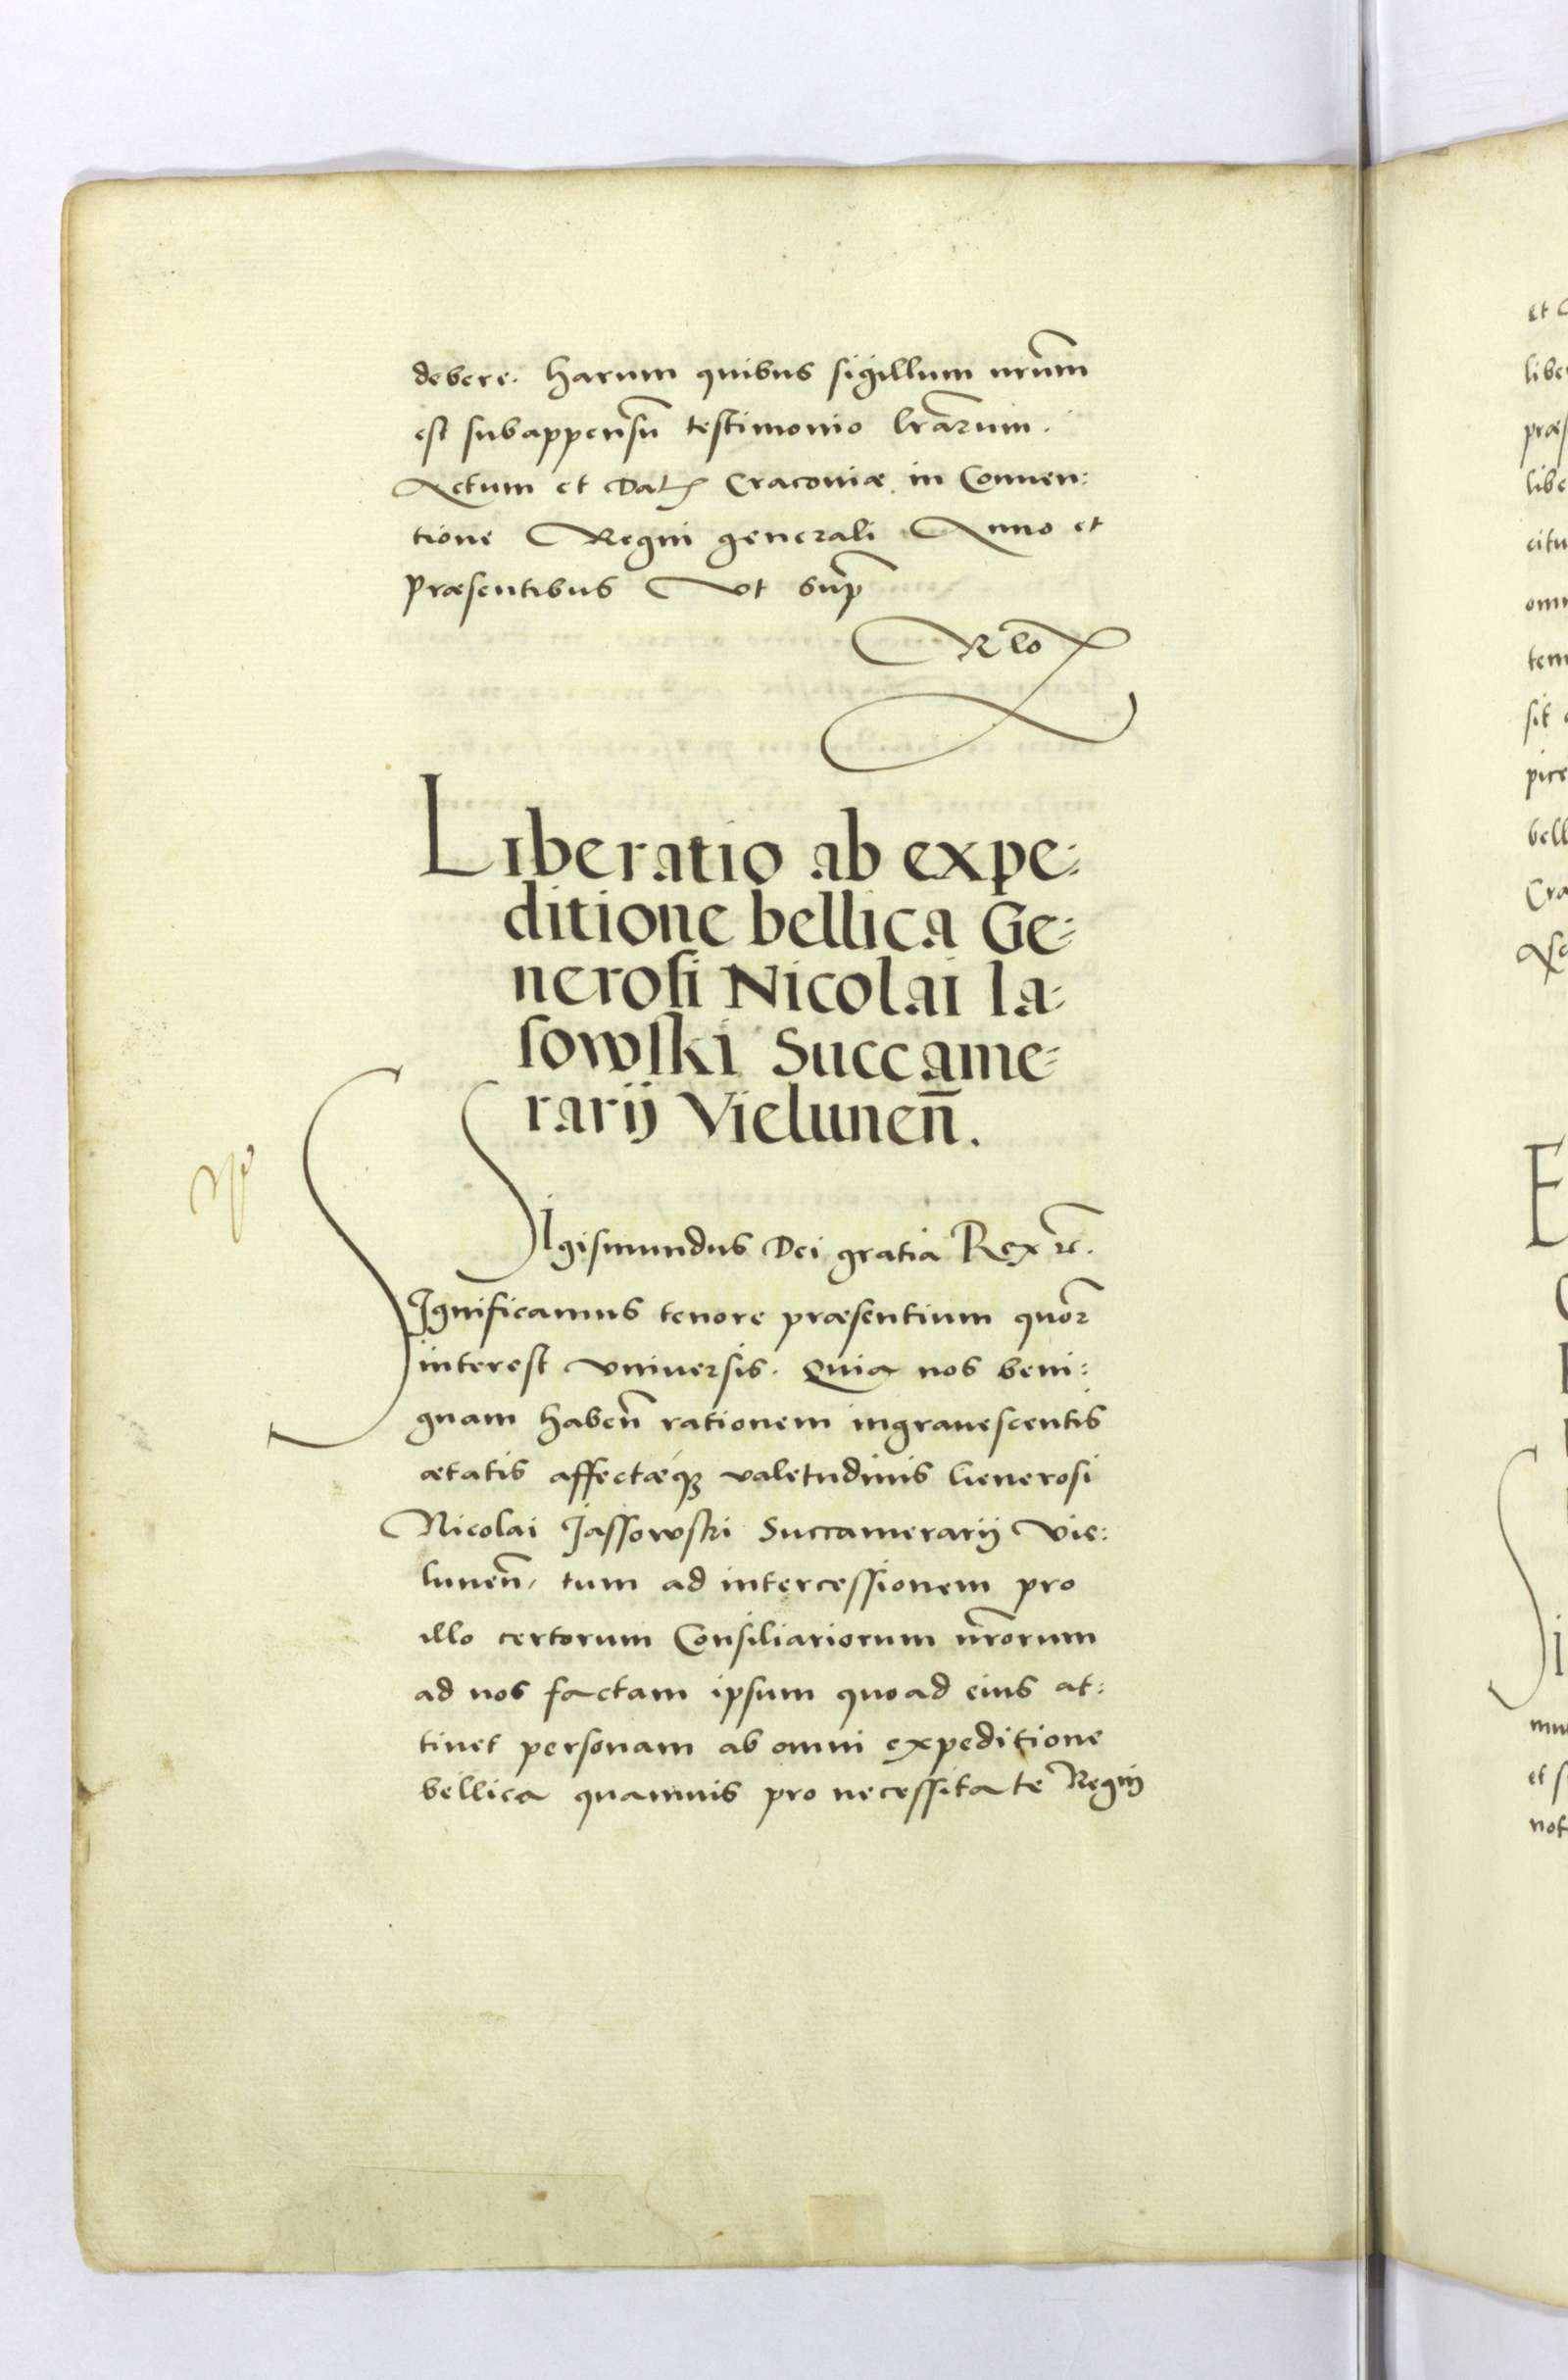 debere. Harum quibus sigillum nrum̃
est subappensũ testimonio lrãrum.
Actum et Dat Craconiæ in Conuen:
tione Regni generali Anno et
Præsentibus Vt Sup̃
Rlõ
Liberatio ab expe:
ditione bellica Ge:
nerosi Nicolai Ia:
sowski Succame:
rarij Vielunen̄.
SIgismundus Dei gratia Rex ⁊c̃.
SIgnificamus tenore præsentium quor̃
interest vniuersis. Quia nos beni:
gnam haben̄ rationem ingrauescentis
ætatis affectæq valetudinis Generosi
Nicolai Jassowski Succamerarij Vie:
lunen̄, tum ad intercessionem pro
illo certorum Consiliariorum nr̃orum
ad nos factam ipsum quoad eius at:
tinet personam ab omni expeditione
bellica quamuis pro necessitate Regnj